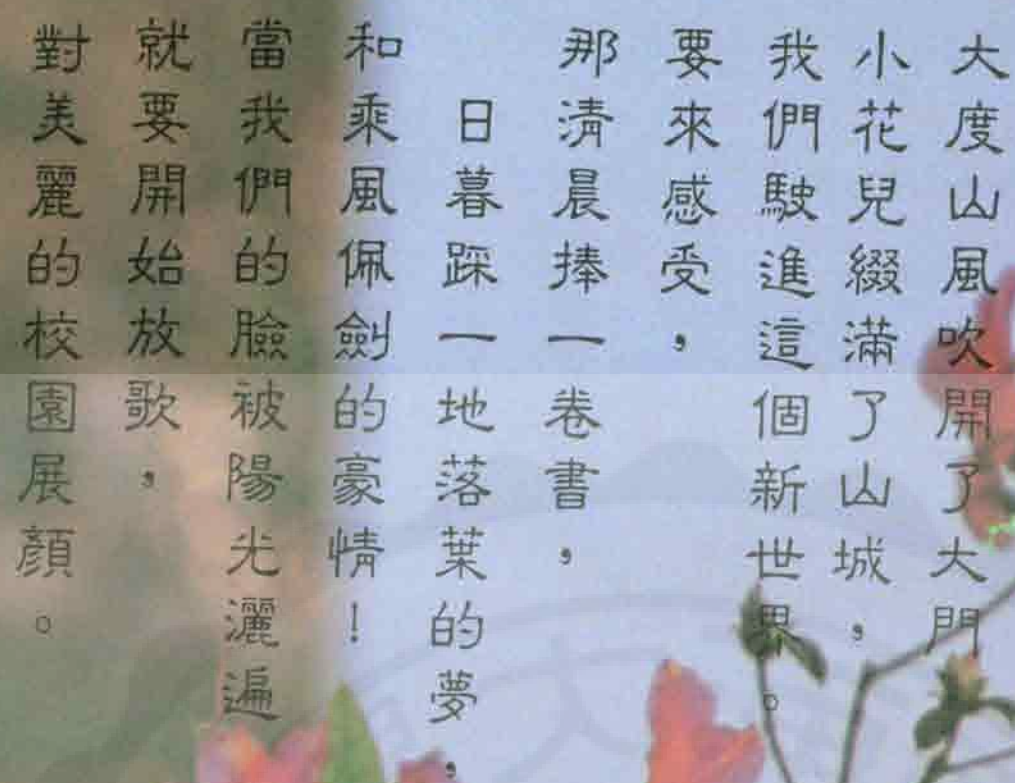 大度山風吹開了大門
小花兒綴滿了山城，
我們駛進這個新世界。
要來感受，
那清晨捧一卷書，
日暮踩一地落葉的夢，
和乘風佩劍的豪情！
當我們的臉被陽光灑遍
就要開始放歌，
對美麗的校園展顏。